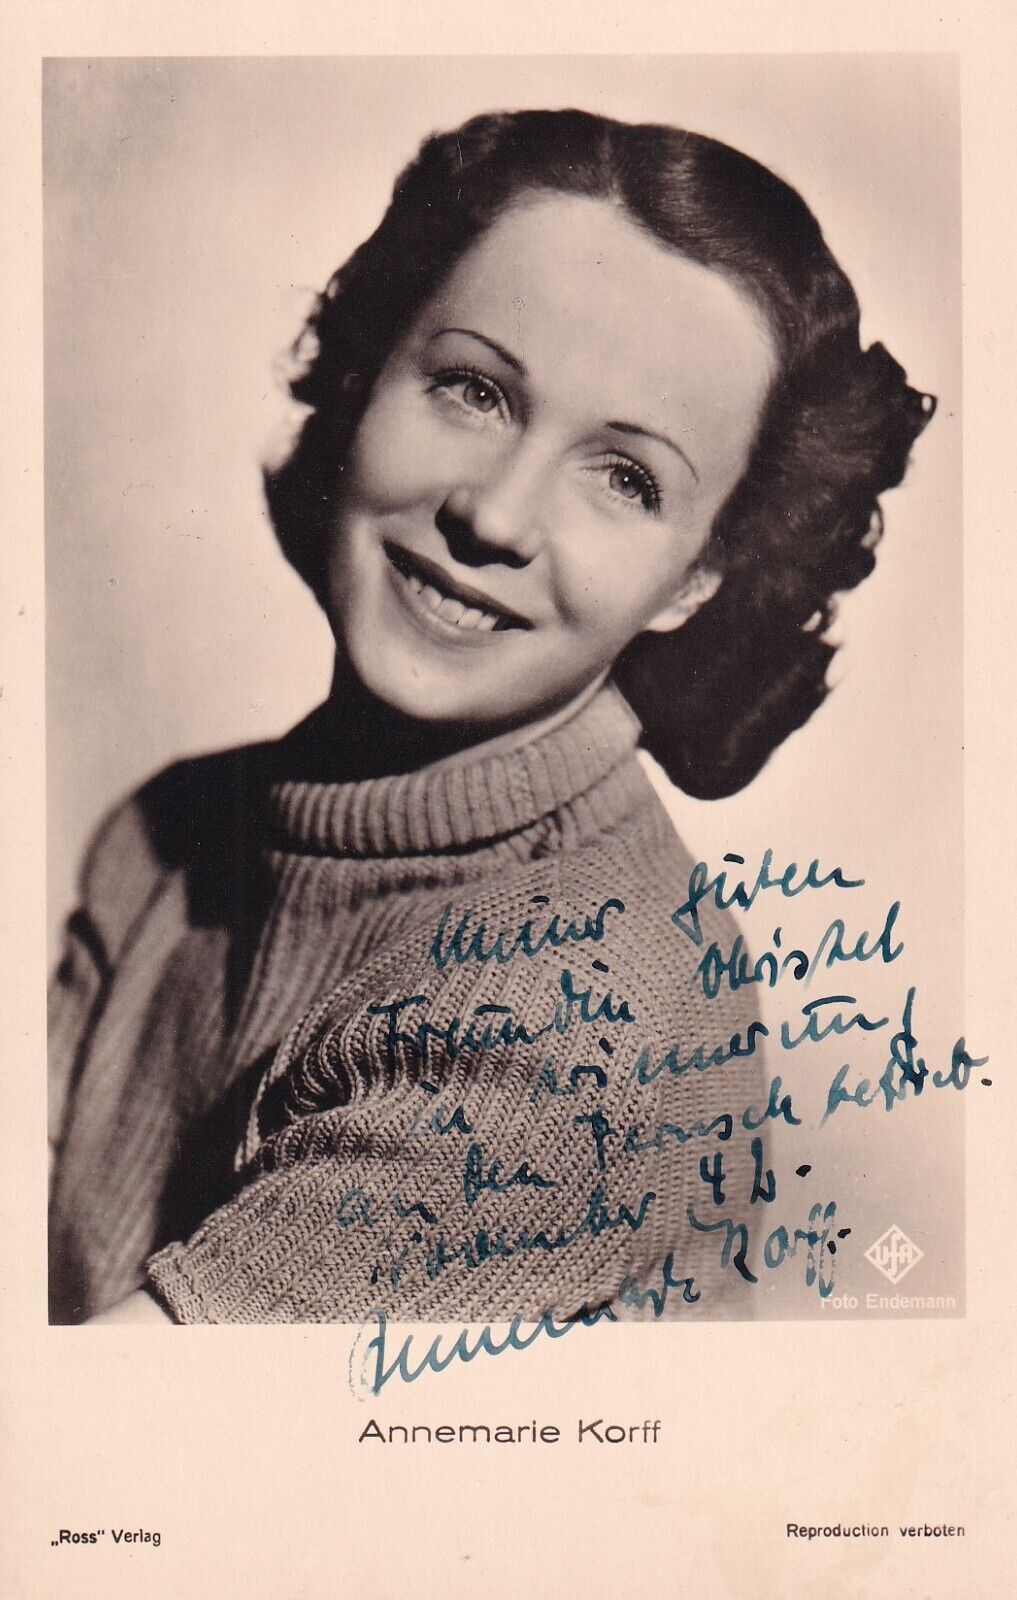 Meiner guten
Freundin Christel
in Erinnerung
an den Fernsehbetrieb.
November 42.
Annemarie Korff.
UFA
Foto Endemann
Annemarie Korff
„Ross" Verlag
Reproduction verboten